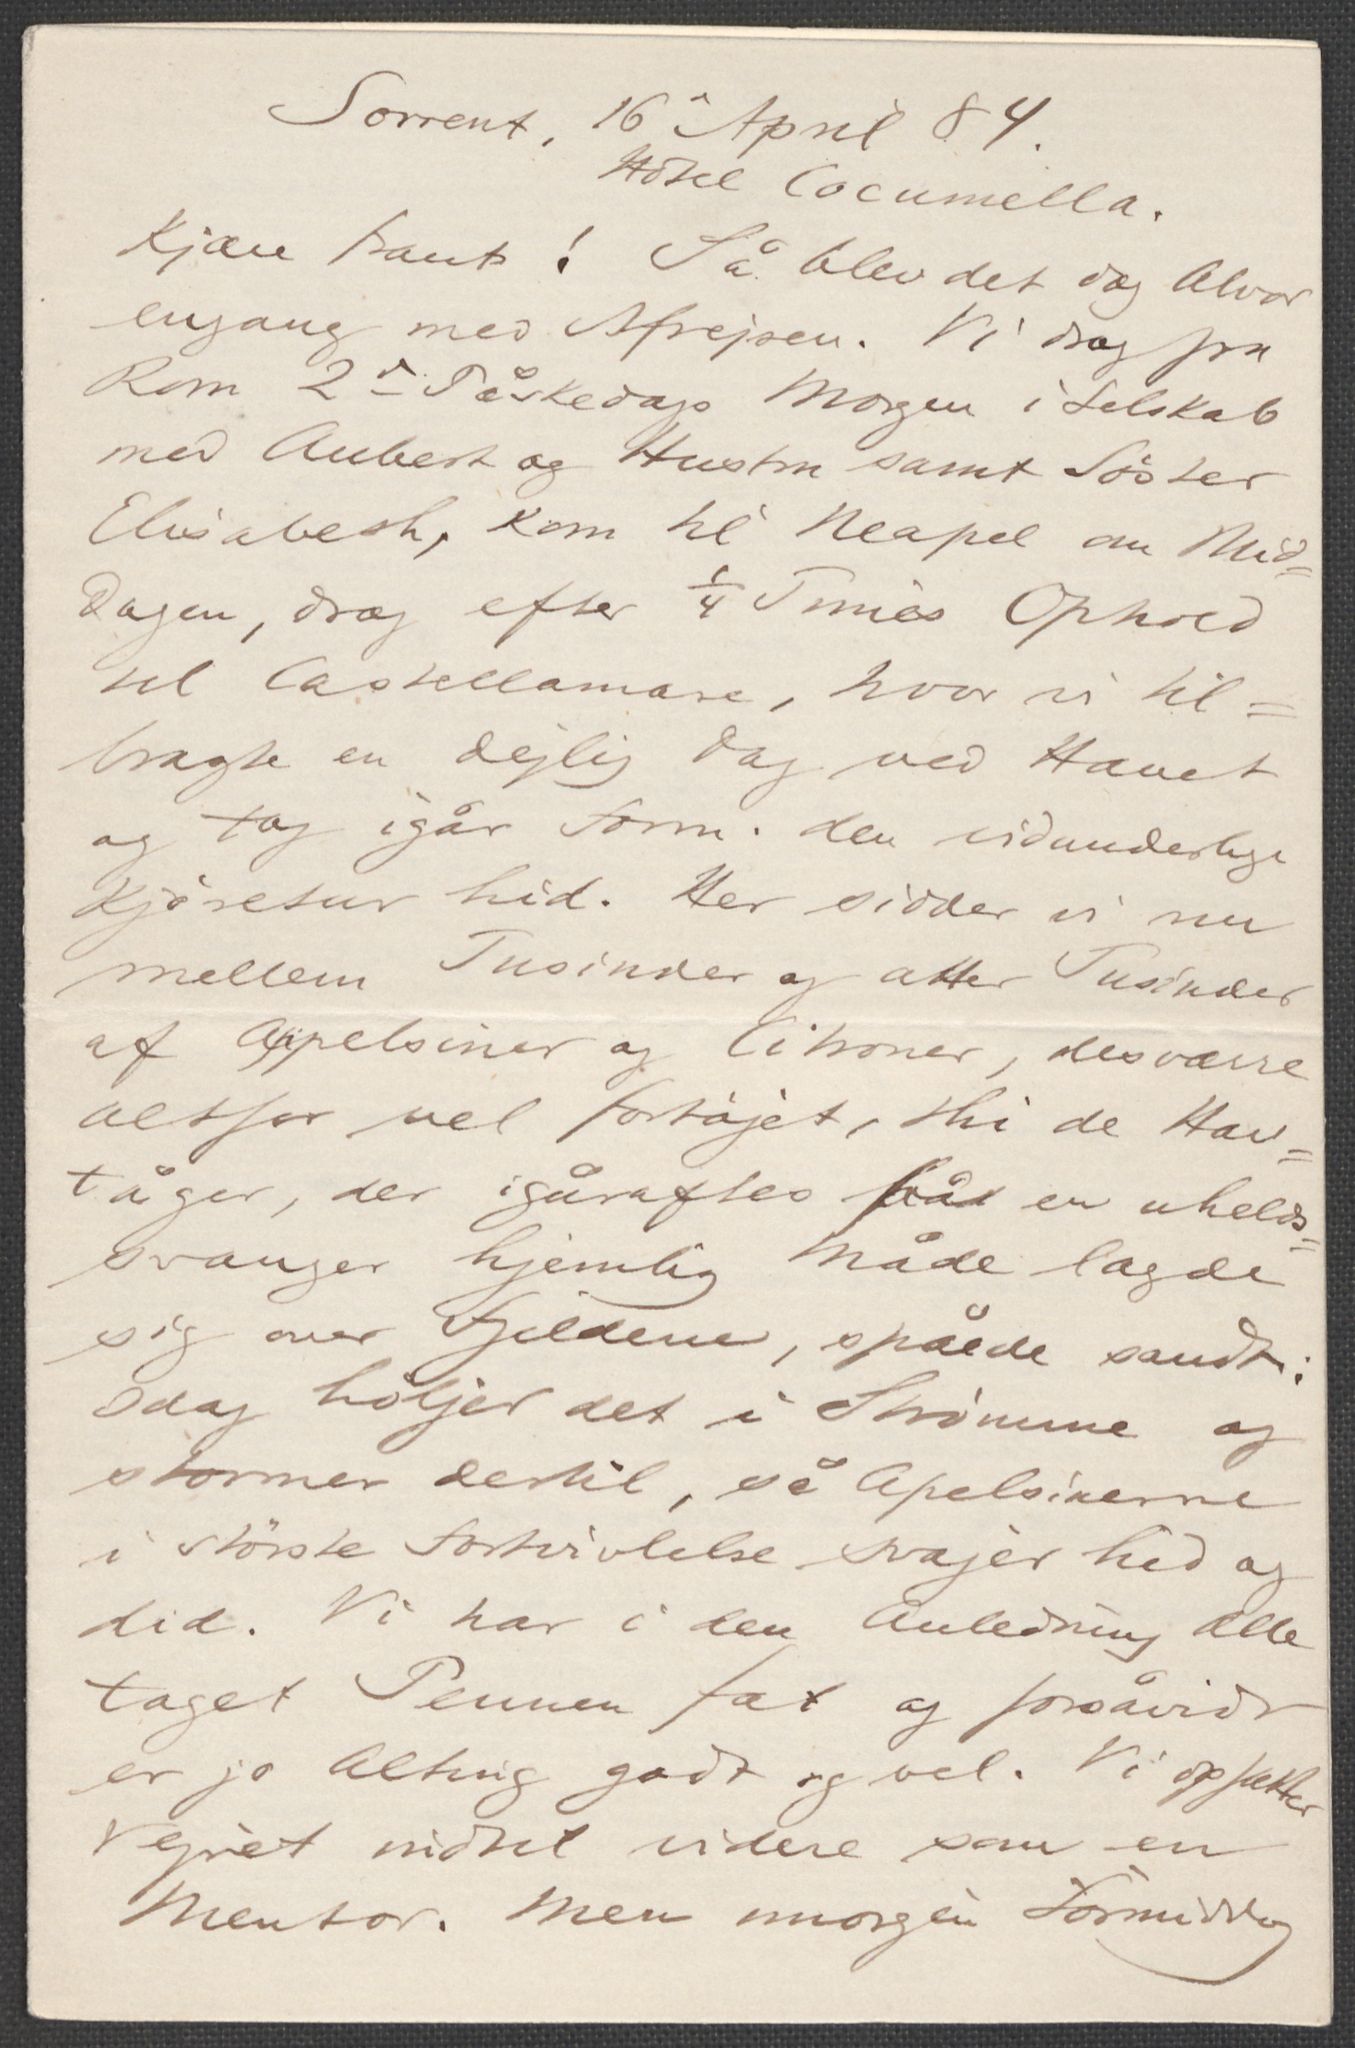 Sorrent, 16 April 84.
Hôtel Cocumella.
Kjære Frants! Så blev det dog Alvor
engang med Afrejsen. Vi drog fra
Rom 2den Påskedags Morgen i Selskab
med Aubert og Hustru samt Söster
Elisabeth, kom til Neapel om Mid=
dagen, drog efter ¼ Times Ophold
til Castellamare, hvor vi til=
bragte en dejlig Dag ved Havet
og tog igår Form. den vidunderlige
Kjöretur hid. Her sidder vi nu
mellem Tusinder og atter Tusinder
af Appelsiner og Citroner, desværre
altfor vel fortöjet, thi de Hav=
tåger, der igåraftes på en uhelds=
svanger hjemlig Måde lagde
sig over Fjeldene, spåede sandt:
Idag höljer det i Strömme og
stormer dertil, så Apelsinerne
i störste Fortvivlelse svajer hid og
did. Vi har i den Anledning alle
taget Pennen fat og forsåvidt
er jo Alting godt og vel. Vi opsætter
Vejret indtil videre som en
Mentor. Men imorgen Formiddag